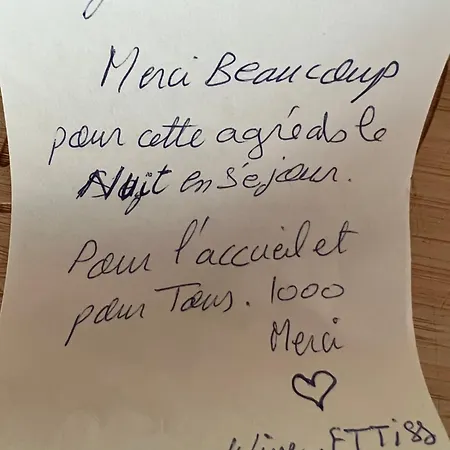 Merci Beaucoup
pour cette agréable
Nuit en séjour.
Pour l'accueil et
pour Tous. 1000
Merci
ETTiss